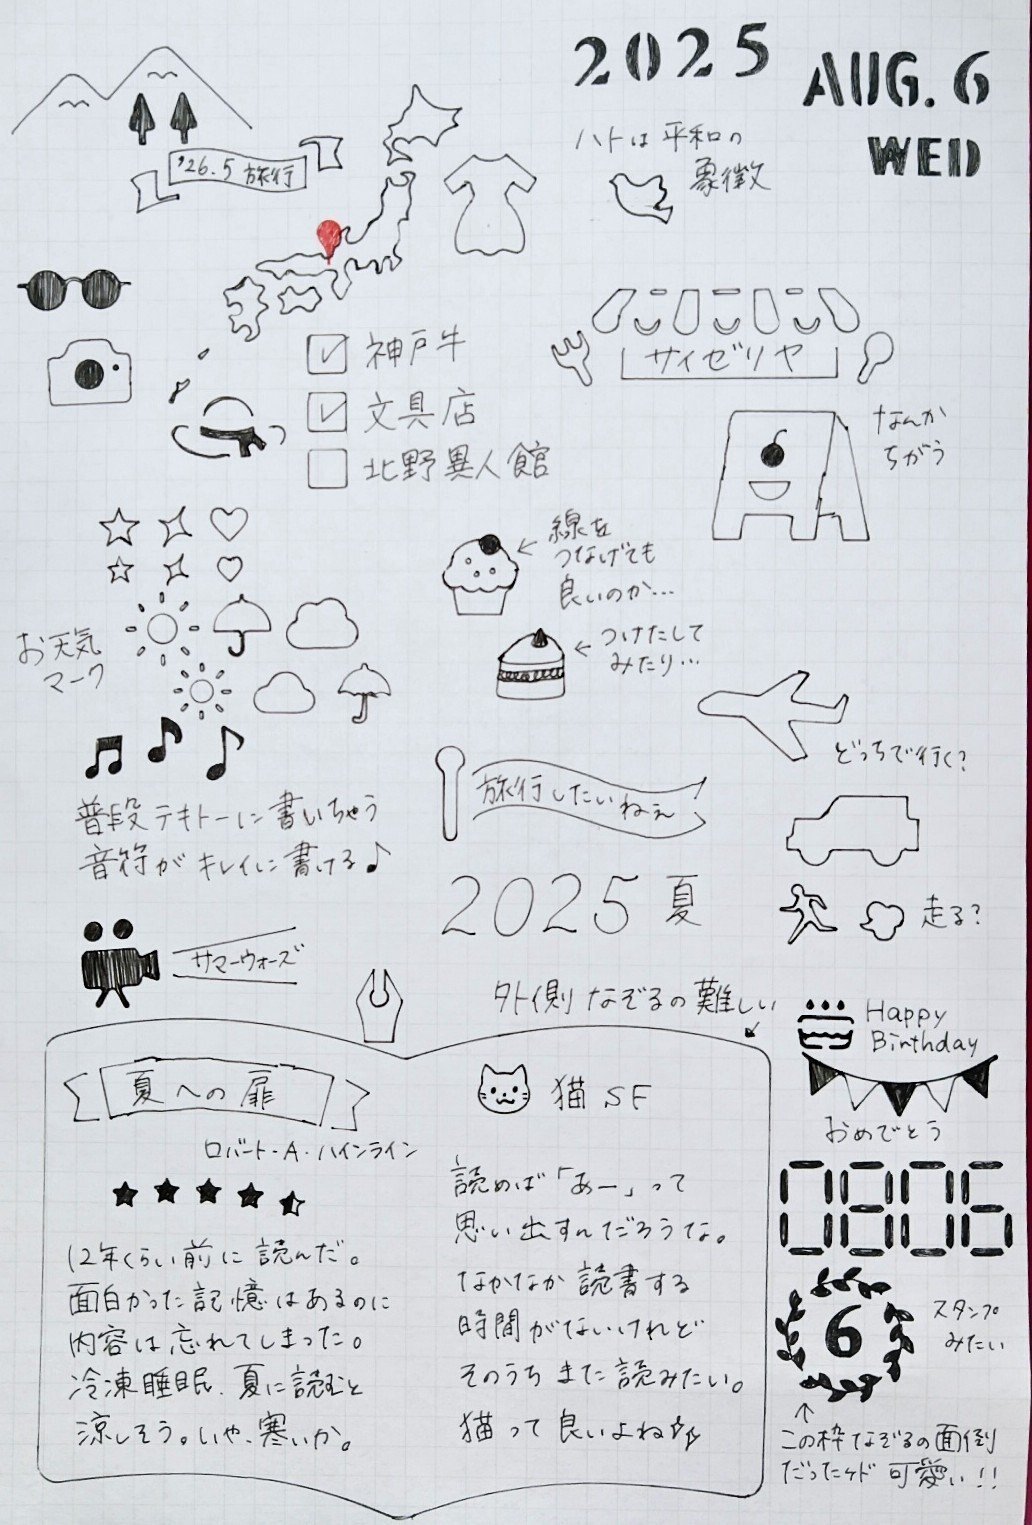 2025
AUG. 6
WED
ハトは平和の
象徴
'26.5 旅行
神戸牛
文具店
北野異人館
サイゼリヤ
なんか
ちがう
線を
つなげても
良いのか…
つけたして
みたり…
お天気
マーク
どっちで行く?
旅行したいねぇ
普段テキトーに書いちゃう
音符がキレイに書ける♪
2025 夏
走る?
サマーウォーズ
外側なぞるの難しい
Happy
Birthday
おめでとう
夏への扉
ロバート・A・ハインライン
★★★★
12年くらい前に読んだ。
面白かった記憶はあるのに
内容は忘れてしまった。
冷凍睡眠、夏に読むと
涼しそう。いや、寒いか。
猫 SF
読めば「あー」って
思い出すんだろうな。
なかなか読書する
時間がないけれど
そのうちまた読みたい。
猫って良いよね
0806
6
スタンプ
みたい
この枠なぞるの面倒
だったケド可愛い!!